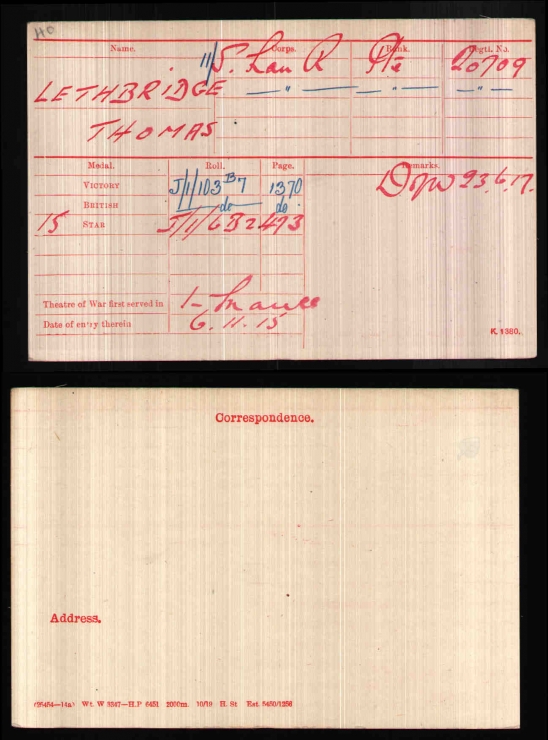 HO
Name. Corps. Rank. Regtl. No.
11/S. Lan R Pte 20709
LETHBRIDGE — " — — " — — " —
THOMAS
Medal. Roll. Page. Remarks.
VICTORY J/1/103 B7 1370 Dofw 23.6.17.
BRITISH do do
15 STAR J/1/6B2 493
Theatre of War first served in 1- France
Date of entry therein 6.11.15
K. 1380.
Correspondence.
Address.
Wt. W 3347—H.P 6451 2000m. 10/19 H. St Est. 5450/1256